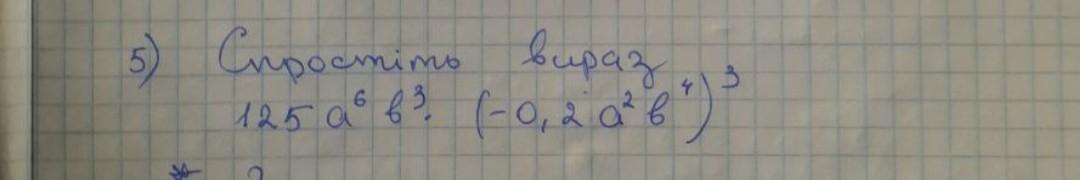 5) Спростіть вираз
125 a⁶ b³ · (-0,2 a² b⁴)³